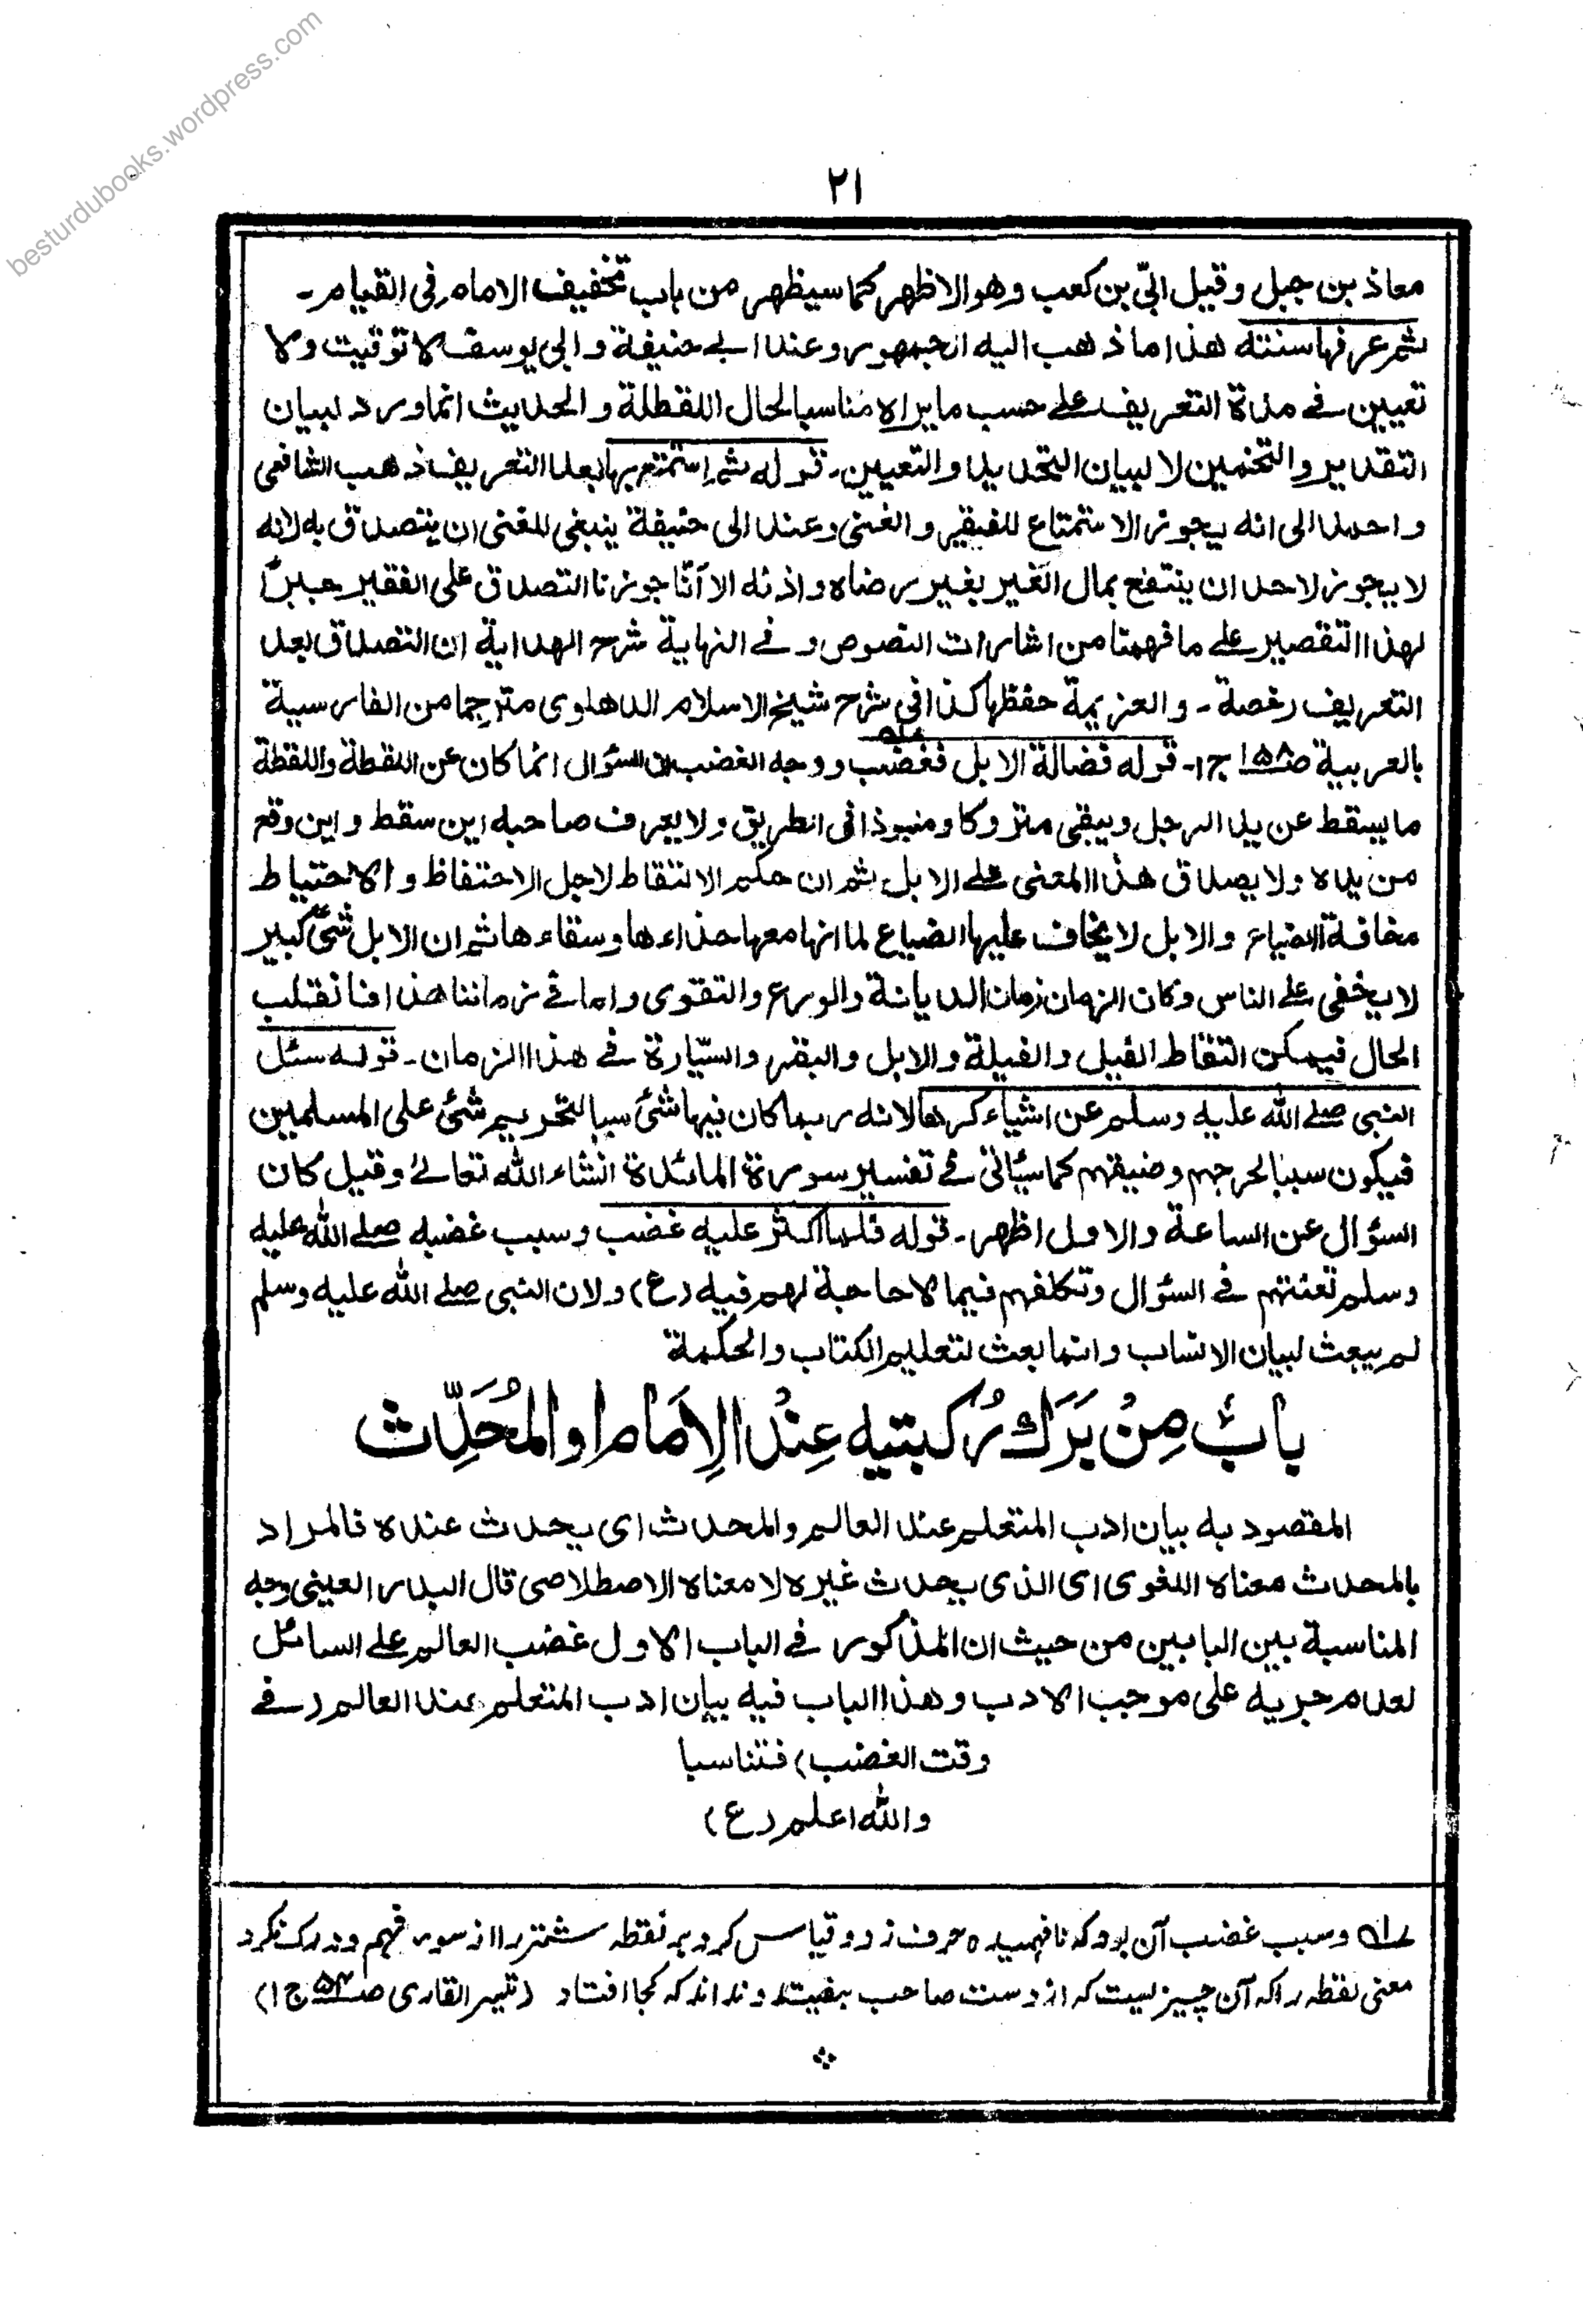 besturdubooks.wordpress.com
٢١
معاذ بن جبل وقيل ابيّ بن كعب وهو الاظهر كما سيظهر من باب تخفيف الامام في القيام۔
ثم عرفها سنته هذا ما ذهب اليه الجمهور وعند ابي حنيفة وابي يوسف لا توقيت ولا
تعيين في مدة التعريف على حسب ما يراه مناسبا لحال اللقطلة والحديث انما ورد لبيان
التقدير والتخمين لا لبيان التحديد والتعيين۔ قوله ثم استمتع بها بعد التعريف ذهب الشافعي
واحمد الى انه يجوز الاستمتاع للفقير والغني وعند ابي حنيفة ينبغي للغني ان يتصدق به لانه
لا يجوز لاحد ان ينتفع بمال الغير بغير رضاه واذنه الا آنّا جوزنا التصدق على الفقير جبرًا
لهذا التقصير على ما فهمنا من اشارات النصوص وفي النهاية شرح الهداية ان التصدق بعد
التعريف رخصة۔ والعزيمة حفظها كذا في شرح شيخ الاسلام الدهلوي مترجما من الفارسية
بالعربية صـ١٥٨ ج١۔ قوله فضالة الابل فغضب عله ووجه الغضب ان السؤال انما كان عن اللقطة واللقطة
ما يسقط عن يد الرجل ويبقى متروكا ومنبوذا في الطريق ولا يعرف صاحبه اين سقط واين وقع
من يده ولا يصدق هذا المعنى على الابل ثم ان حكم الالتقاط لاجل الاحتفاظ والاحتياط
مخافة الضياع والابل لا يخاف عليها الضياع لما انها معها حذاءها وسقاءها ثم ان الابل شئ كبير
لا يخفى على الناس وكان الزمان زمان الديانة والورع والتقوى واما في زماننا هذا فانقلب
الحال فيمكن التقاط الفيل والفيلة والابل والبقر والسيّارة في هذا الزمان۔ قوله سئل
النبي صلى الله عليه وسلم عن اشياء كرهها لانه ربما كان فيها شئ سببا لتحريم شئ على المسلمين
فيكون سببا لحرجهم وضيقهم كما سيأتي في تفسير سورة المائدة انشاء الله تعالى وقيل كان
السؤال عن الساعة والاول اظهر۔ قوله فلما اكثر عليه غضب وسبب غضبه صلى الله عليه
وسلم تعنتهم في السؤال وتكلفهم فيما لا حاجة لهم فيه (ع) ولان النبي صلى الله عليه وسلم
لم يبعث لبيان الانساب وانما بعث لتعليم الكتاب والحكمة
بابُ مِنْ بَرَكَ رُكبتيه عِنْدَ الإِمَام او المُحَدِّث
المقصود به بيان ادب المتعلم عند العالم والمحدث اى يحدث عنده فالمراد
بالمحدث معناه اللغوى اى الذى يحدث غيره لا معناه الاصطلاحى قال البدر العينى وجه
المناسبة بين البابين من حيث ان المذكور في الباب الاول غضب العالم على السائل
لعدم جريه على موجب الادب وهذا الباب فيه بيان ادب المتعلم عند العالم (في
وقت الغضب) فتناسبا
والله اعلم (ع)
عله وسبب غضب آن بود كه نافهميده حرف زد و قياس كرد بر لقطه شتر را از سوء فهم و درک نكرد
معنى لقطه را كه آن چيزيست كه از دست صاحب بيفتد و نداند كه كجا افتاد (تيسر القارى صـ٥٢ ج١)